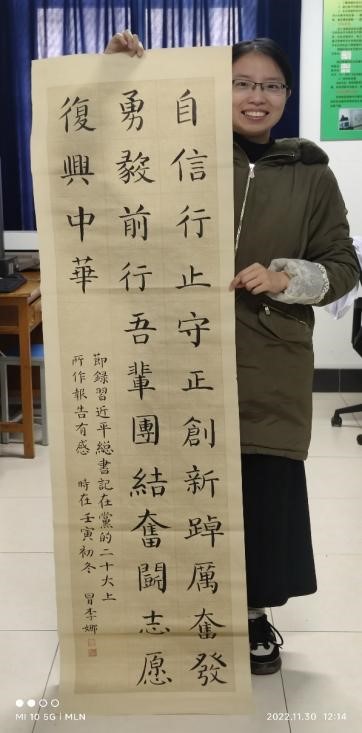 自信行止守正創新踔厲奮發
勇毅前行吾輩團結奮鬪志愿
復興中華
節錄習近平總書記在黨的二十大上
所作報告有感 時在壬寅初冬 冒李娜
MI 10 5G | MLN
2022.11.30 12:14